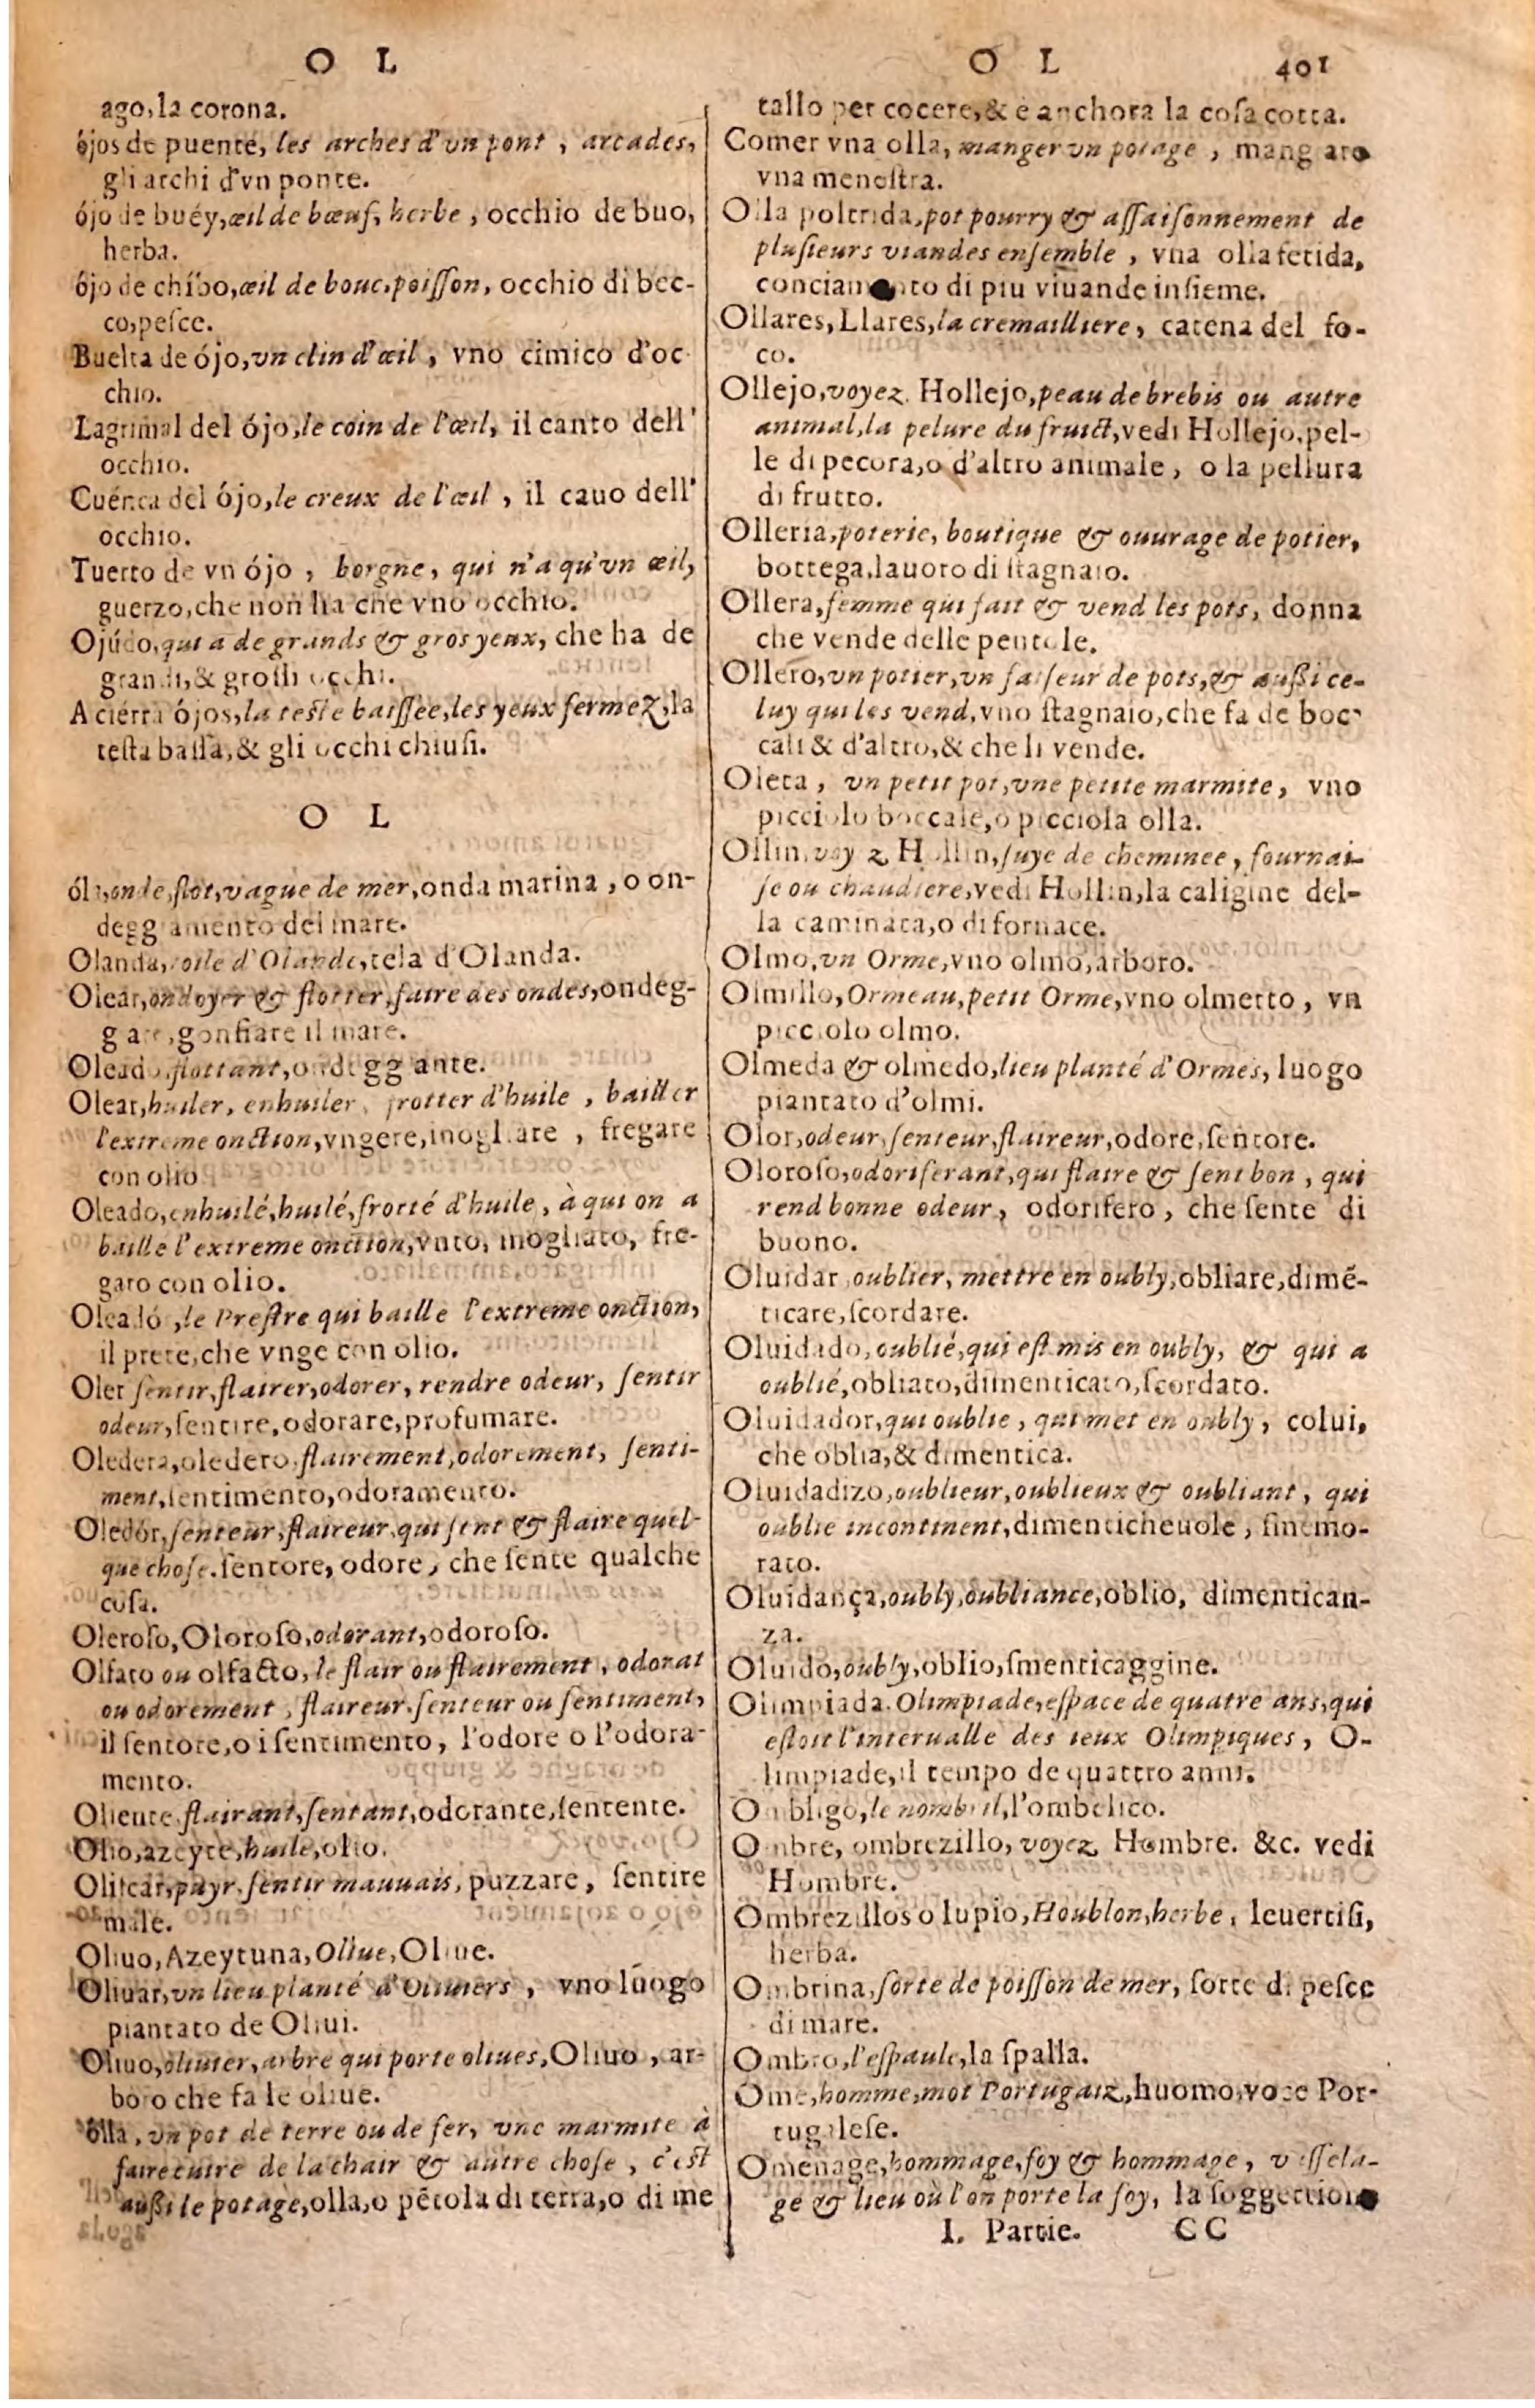 O L
ago,la corona.
ójos de puente, les arches d'vn pont , arcades,
gli archi d'vn ponte.
ójo de buéy,œil de bœuf, herbe , occhio de buo,
herba.
ójo de chíbo,œil de bouc,poiſſon, occhio di bec-
co,peſce.
Buelta de ójo,vn clin d'œil , vno cimico d'oc-
chio.
Lagrimal del ójo,le coin de l'œil, il canto dell'
occhio.
Cuénca del ójo,le creux de l'œil , il cauo dell'
occhio.
Tuerto de vn ójo , borgne, qui n'a qu'vn œil,
guerzo,che non ha che vno occhio.
Ojúdo,qui a de grands & gros yeux, che ha de
grandi,& groſſi occhi.
A ciérra ójos,la teſte baiſſee,les yeux fermez,la
teſta baſſa,& gli occhi chiuſi.
O L
óla,onde,flot,vague de mer,onda marina , o on-
deggiamento del mare.
Olanda,toile d'Olande,tela d'Olanda.
Olear,ondoyer & flotter,faire des ondes,ondeg-
giare,gonfiare il mare.
Oleado,flottant,ondeggiante.
Olear,huiler, enhuiler, frotter d'huile , bailler
l'extreme onction,vngere,inogliare , fregare
con olio.
Oleado,enhuilé,huilé,frotté d'huile, à qui on a
baille l'extreme onction,vnto, inogliato, fre-
gato con olio.
Oleadó,le Preſtre qui baille l'extreme onction,
il prete,che vnge con olio.
Oler ſentir,flairer,odorer, rendre odeur, ſentir
odeur,ſentire,odorare,profumare.
Oledera,oledero,flairement,odorement, ſenti-
ment,ſentimento,odoramento.
Oledór,ſenteur,flaireur,qui ſent & flaire quel-
que choſe.ſentore, odore , che ſente qualche
coſa.
Oleroſo,Oloroſo,odorant,odoroſo.
Olfato ou olfacto, le flair ou flairement , odorat
ou odorement , flaireur,ſenteur ou ſentiment,
il ſentore,o i ſentimento, l'odore o l'odora-
mento.
Oliente,flairant,ſentant,odorante,ſentente.
Olio,azeyte,huile,olio.
Oliſcar,puyr,ſentir mauuais, puzzare, ſentire
male.
Oliuo,Azeytuna,Oliue,Oliue.
Oliuar,vn lieu planté d'Oliuiers , vno luogo
piantato de Oliui.
Oliuo,oliuier,arbre qui porte oliues,Oliuo , ar-
boro che fa le oliue.
ólla , vn pot de terre ou de fer, vne marmite à
faire cuire de la chair & autre choſe , c'est
auſſi le potage,olla,o pētola di terra,o di me
O L 401
tallo per cocere,& e anchora la coſa cotta.
Comer vna olla, manger vn potage , mangiare
vna meneſtra.
Olla poltrida,pot pourry & aſſaiſonnement de
pluſieurs viandes enſemble , vna olla fetida,
conciamento di piu viuande inſieme.
Ollares,Llares,la cremailliere, catena del fo-
co.
Ollejo,voyez Hollejo,peau de brebis ou autre
animal,la pelure du fruict,vedi Hollejo,pel-
le di pecora,o d'altro animale , o la pellura
di frutto.
Olleria,poterie, boutique & ouurage de potier,
bottega,lauoro di ſtagnaio.
Ollera,femme qui fait & vend les pots, donna
che vende delle pentole.
Ollero,vn potier,vn faiſeur de pots,& auſſi ce-
luy qui les vend,vno ſtagnaio,che fa de boc-
cali & d'altro,& che li vende.
Oleta , vn petit pot,vne petite marmite, vno
picciolo boccale,o picciola olla.
Ollin,voyez Hollin,ſuye de cheminee, fournai-
ſe ou chaudiere,vedi Hollin,la caligine del-
la caminata,o di fornace.
Olmo,vn Orme,vno olmo,arboro.
Olmillo,Ormeau,petit Orme,vno olmetto, vn
picciolo olmo.
Olmeda & olmedo,lieu planté d'Ormes, luogo
piantato d'olmi.
Olor,odeur,ſenteur,flaireur,odore,ſentore.
Oloroſo,odoriferant,qui flaire & ſent bon , qui
rend bonne odeur, odorifero, che ſente di
buono.
Oluidar,oublier, mettre en oubly,obliare,dimē-
ticare,ſcordare.
Oluidado,oublié,qui est mis en oubly, & qui a
oublié,obliato,dimenticato,ſcordato.
Oluidador,qui oublie , qui met en oubly, colui,
che oblia,& dimentica.
Oluidadizo,oublieur,oublieux & oubliant , qui
oublie incontinent,dimenticheuole , ſinemo-
rato.
Oluidança,oubly,oubliance,oblio, dimentican-
za.
Oluido,oubly,oblio,ſmenticaggine.
Olimpiada.Olimpiade,eſpace de quatre ans,qui
eſtoit l'interualle des ieux Olimpiques, O-
limpiade,il tempo de quattro anni.
Ombligo,le nombril,l'ombelico.
Ombre, ombrezillo, voyez Hombre. &c. vedi
Hombre.
Ombrezillos o lupio,Houblon,herbe , leuertiſi,
herba.
Ombrina,ſorte de poiſſon de mer, ſorte di peſce
di mare.
Ombro,l'eſpaule,la ſpalla.
Ome,homme,mot Portugaiz,huomo,voce Por-
tugaleſe.
Omenage,hommage,foy & hommage, vaſſela-
ge & lieu où l'on porte la foy, la ſoggettione
I. Partie. CC